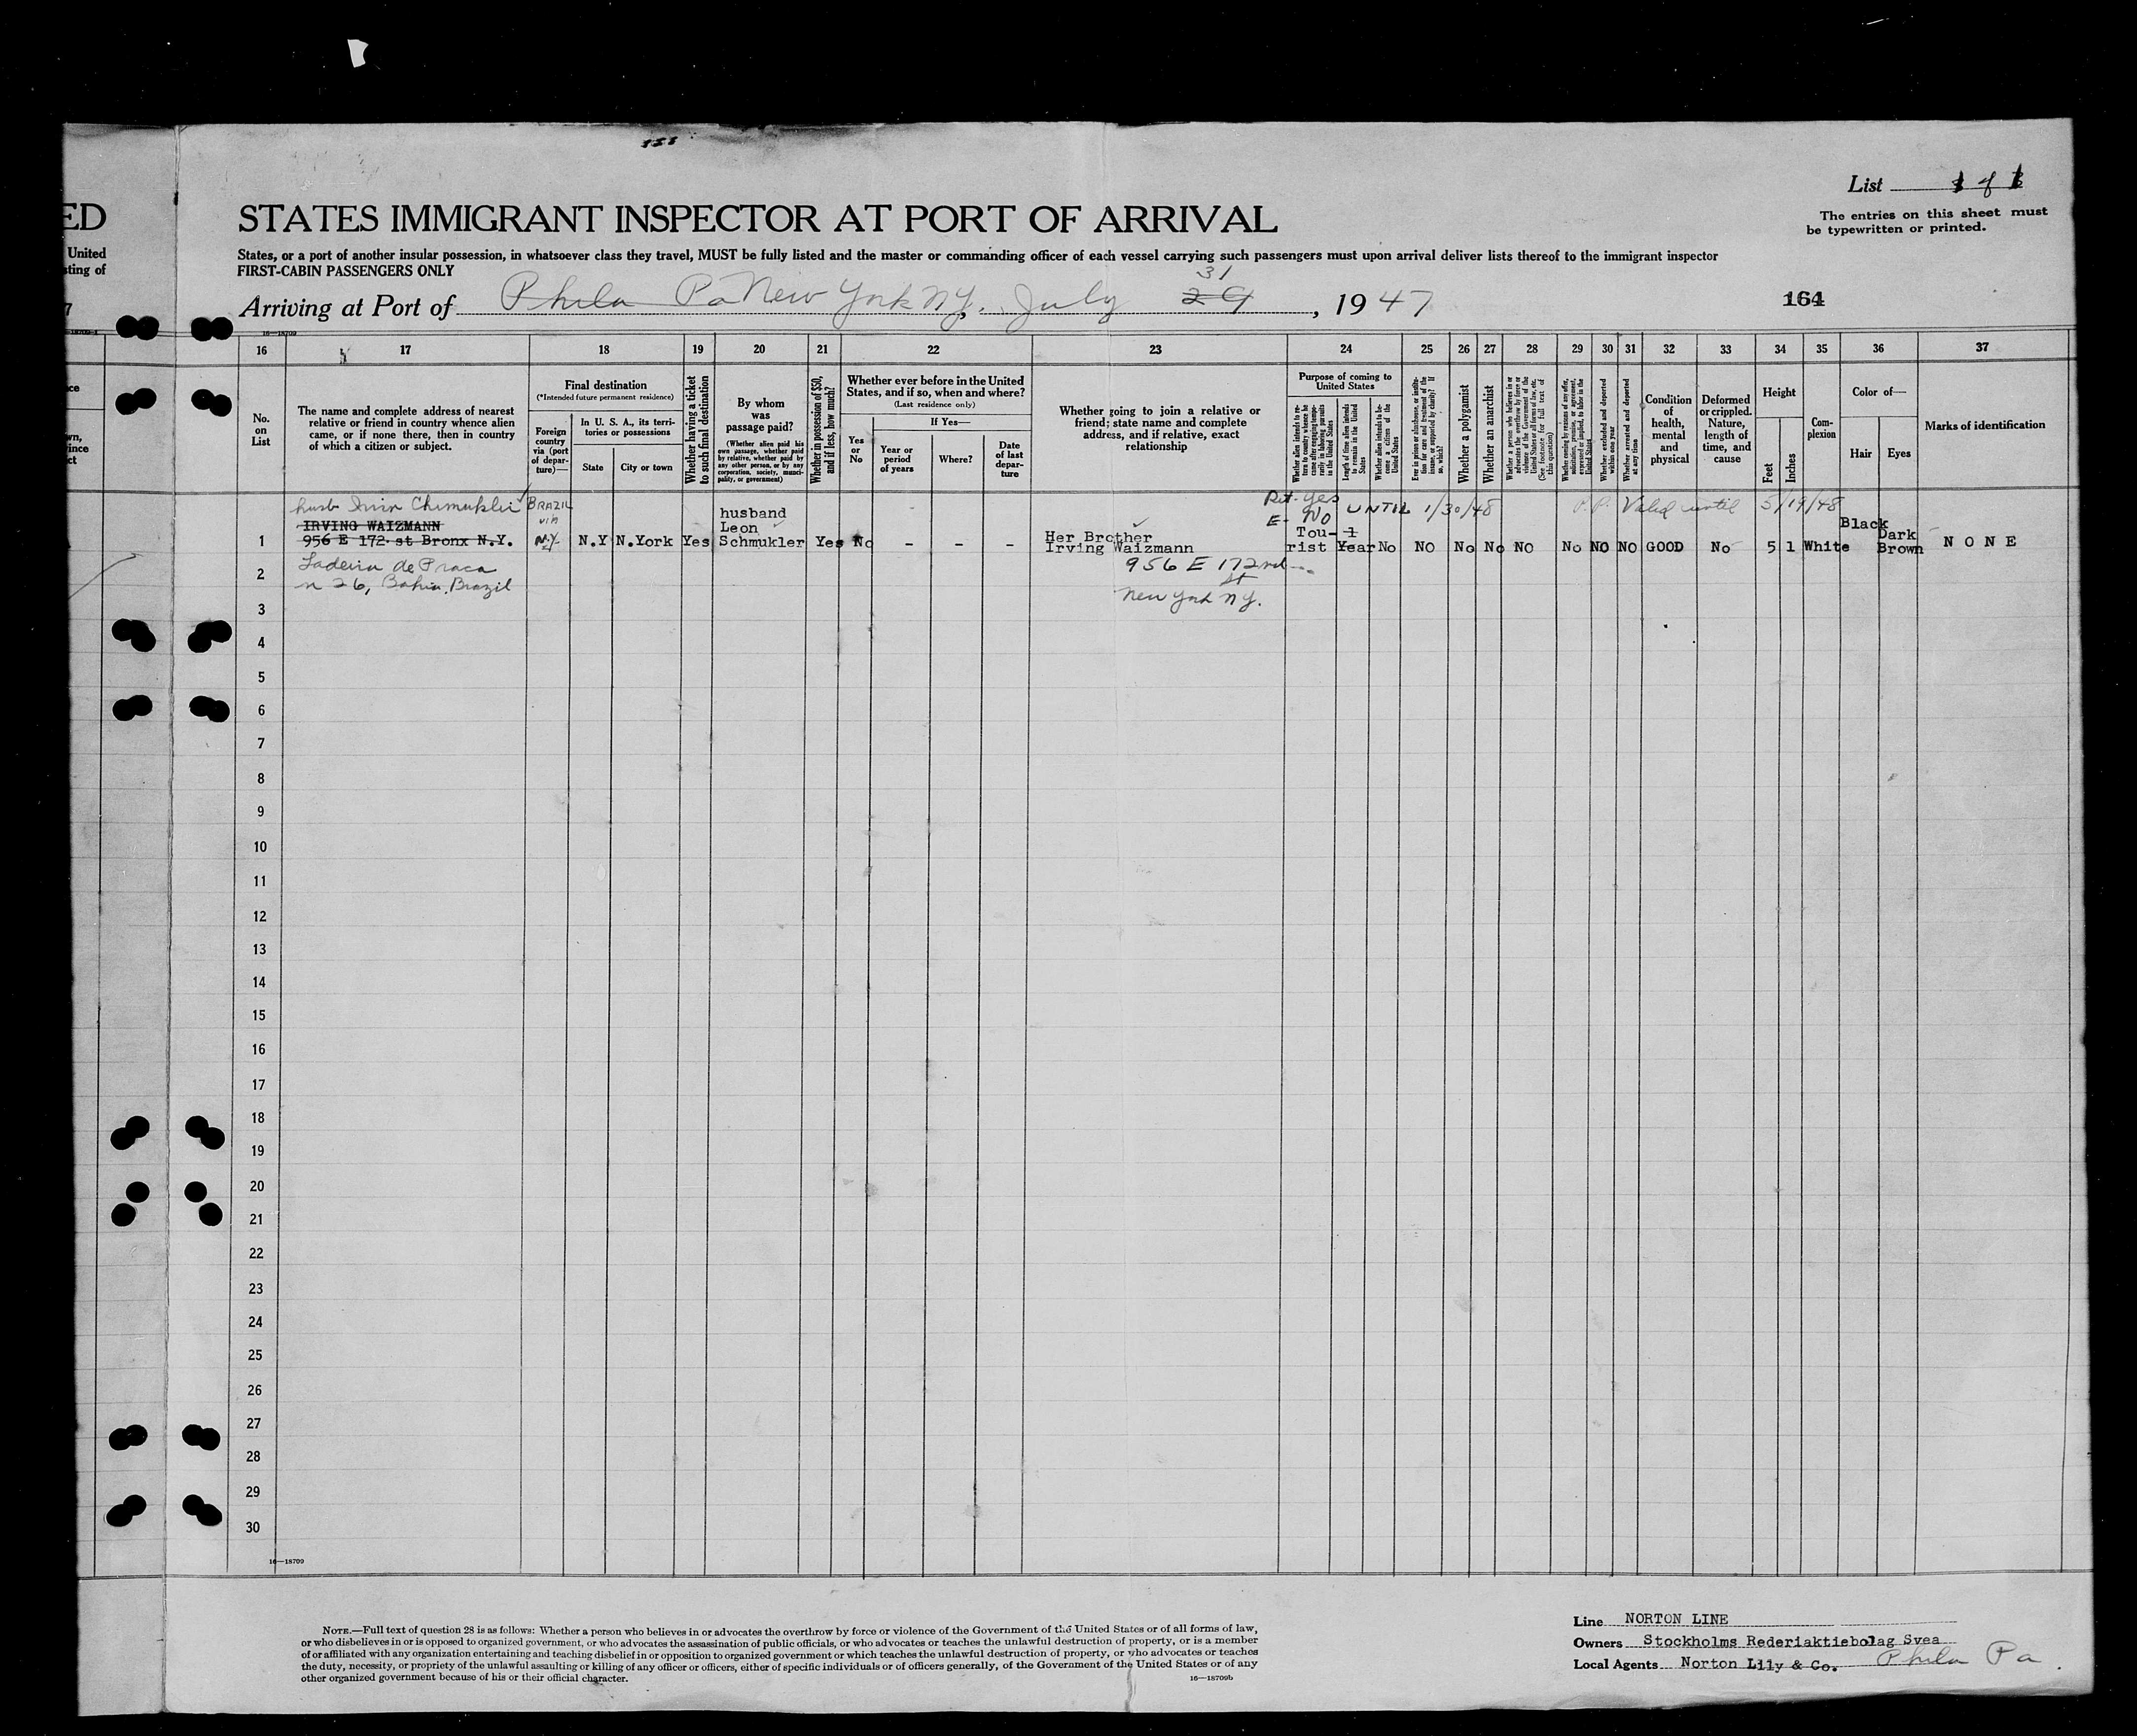 List 1 of 1
The entries on this sheet must
be typewritten or printed.
ED
STATES IMMIGRANT INSPECTOR AT PORT OF ARRIVAL
United
sting of
States, or a port of another insular possession, in whatsoever class they travel, MUST be fully listed and the master or commanding officer of each vessel carrying such passengers must upon arrival deliver lists thereof to the immigrant inspector
FIRST-CABIN PASSENGERS ONLY
31
Arriving at Port of Phila Pa New York N.Y. July 29, 1947
164
16—18709
16 17 18 19 20 21 22 23 24 25 26 27 28 29 30 31 32 33 34 35 36 37
No. on List
The name and complete address of nearest relative or friend in country whence alien came, or if none there, then in country of which a citizen or subject.
Final destination
(*Intended future permanent residence)
Foreign country via (port of departure)—
In U. S. A., its territories or possessions
State
City or town
Whether having a ticket to such final destination
By whom was passage paid?
(Whether alien paid his own passage, whether paid by relative, whether paid by any other person, or by any corporation, society, municipality, or government)
Whether in possession of $50, and if less, how much?
Whether ever before in the United States, and if so, when and where?
(Last residence only)
Yes or No
If Yes—
Year or period of years
Where?
Date of last departure
Whether going to join a relative or friend; state name and complete address, and if relative, exact relationship
Purpose of coming to United States
Whether alien intends to return to country whence he came after engaging temporarily in laboring pursuits in the United States
Length of time alien intends to remain in the United States
Whether alien intends to become a citizen of the United States
Ever in prison or almshouse, or institution for care and treatment of the insane, or supported by charity? If so, which?
Whether a polygamist
Whether an anarchist
Whether a person who believes in or advocates the overthrow by force or violence of the Government of the United States or all forms of law, etc. (See footnote for full text of this question)
Whether coming by reason of any offer, solicitation, promise, or agreement, expressed or implied, to labor in the United States
Whether excluded and deported within one year
Whether arrested and deported at any time
Condition of health, mental and physical
Deformed or crippled. Nature, length of time, and cause
Height
Feet
Inches
Complexion
Color of—
Hair
Eyes
Marks of identification
husb BRAZIL husband Ret. Yes UNTIL 1/30/48 P.P. Valid until 5/19/48
IRVING WAIZMANN via Leon E- No Black
1 956 E 172 st Bronx N.Y. N.Y. N.Y N.York Yes Schmukler Yes No - - - Her Brother Irving Waizmann Tourist 1 Year No NO No No NO No NO NO GOOD No 5 1 White Dark Brown NONE
2 Ladeira de Praca 956 E 172nd St
n 26, Bahia, Brazil New York N.Y.
3
4
5
6
7
8
9
10
11
12
13
14
15
16
17
18
19
20
21
22
23
24
25
26
27
28
29
30
16—18709
NOTE.—Full text of question 28 is as follows: Whether a person who believes in or advocates the overthrow by force or violence of the Government of the United States or of all forms of law,
or who disbelieves in or is opposed to organized government, or who advocates the assassination of public officials, or who advocates or teaches the unlawful destruction of property, or is a member
of or affiliated with any organization entertaining and teaching disbelief in or opposition to organized government or which teaches the unlawful destruction of property, or who advocates or teaches
the duty, necessity, or propriety of the unlawful assaulting or killing of any officer or officers, either of specific individuals or of officers generally, of the Government of the United States or of any
other organized government because of his or their official character.
16—18709b
Line NORTON LINE
Owners Stockholms Rederiaktiebolag Svea
Local Agents Norton Lily & Co. Phila Pa.